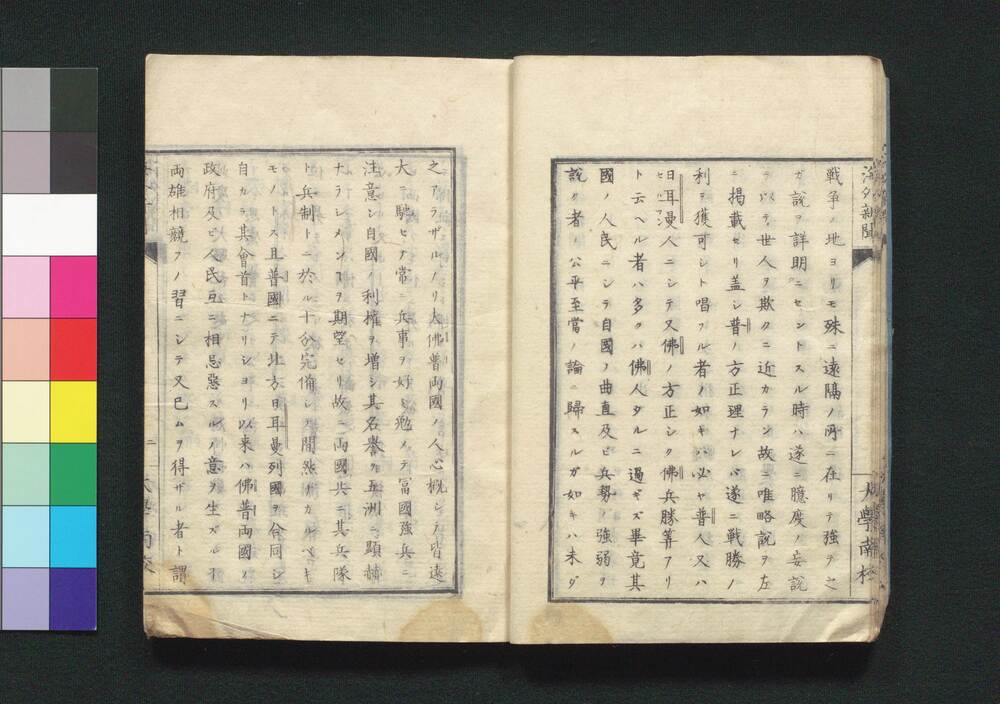 海外新聞
大學南校
戦争ノ地ヨリモ殊ニ遠隔ノ所ニ在リテ強テ之
ガ説ヲ詳明ニセントスル時ハ遂ニ臆度ノ妄説
ヲ以テ世人ヲ欺クニ近カラン故ニ唯略説ヲ左
ニ掲載セリ盖シ普ノ方正理ナレバ遂ニ戦勝ノ
利ヲ獲可シト唱フル者ノ如キハ必ヤ普人又ハ
日耳曼人ニシテ又佛ノ方正シク佛兵勝算アリ
セルマン
ト云ヘル者ハ多クハ佛人タルニ過ギズ畢竟其
國ノ人民ニシテ自國ノ曲直及ビ兵勢ノ強弱ヲ
説ク者ノ公平至當ノ論ニ歸スルガ如キハ未ダ
之アラザルノリ大佛普両國ノ人心概シテ皆遠
大ニ馳セテ常ニ兵事ヲ好ミ勉メテ富國強兵ニ
注意シ自國ノ利權ヲ増シ其名譽ヲ五洲ニ顕赫
ナラシメンヿヲ期望セリ故ニ両國共ニ其兵隊
ト兵制トニ於ル十分完備シテ間然ナカルベキ
モノトス且普國ニテ北方日耳曼列國ヲ合同シ
自カラ其會首トナリシヨリ以来ハ佛普両國ノ
政府及ビ人民互ニ相忌惡スルノ意ヲ生ズルハ
両雄相競フノ習ニシテ又已ムヲ得ザル者ト謂
二